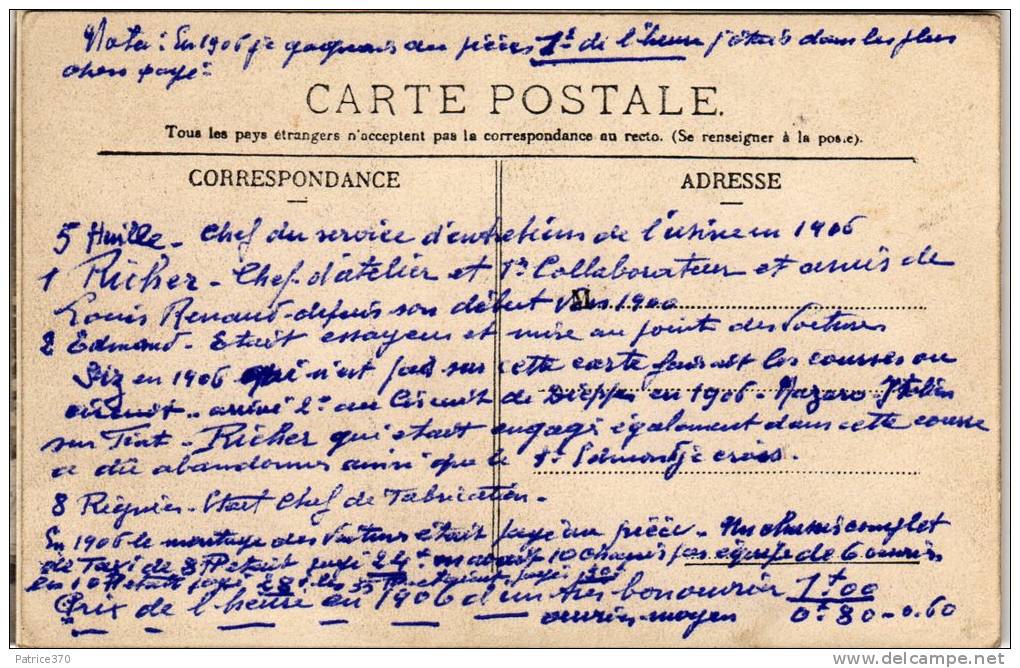 Nota: En 1906 je gagnais aux pièces 1f de l'heure j'étais dans les plus
chers payé
CARTE POSTALE.
Tous les pays étrangers n'acceptent pas la correspondance au recto. (Se renseigner à la poste).
CORRESPONDANCE
ADRESSE
5 Huille - Chef du service d'entretiens de l'usine en 1906
1 Richer - Chef d'atelier et 1er Collaborateur et amis de
M
Louis Renault depuis son début vers 1900
2 Edmond - Etait essayeur et mise au point des Voitures
Siz en 1906 qui n'est pas sur cette carte faisait les courses ou
circuit - arrivé 2e au Circuit de Dieppe en 1906 - Nazaro Italien
sur Fiat - Richer qui etait engagé également dans cette course
a dû abandonner ainsi que le Edmont je crois.
8 Régnier - Etait Chef de Fabrication -
En 1906 le montage des Voitures etait payé au pièce - Un chassis complet
de Taxi de 8 HP etait payé 24f on avait 10 chassis par équipe de 6 ouvriers
les 10 HP etait payé 28f les 35 HP etaient payé
Prix de l'heure en 1906 d'un très bon ouvrier 1f00
ouvrier moyen 0f80 - 0.60
Patrice370
www.delcampe.net